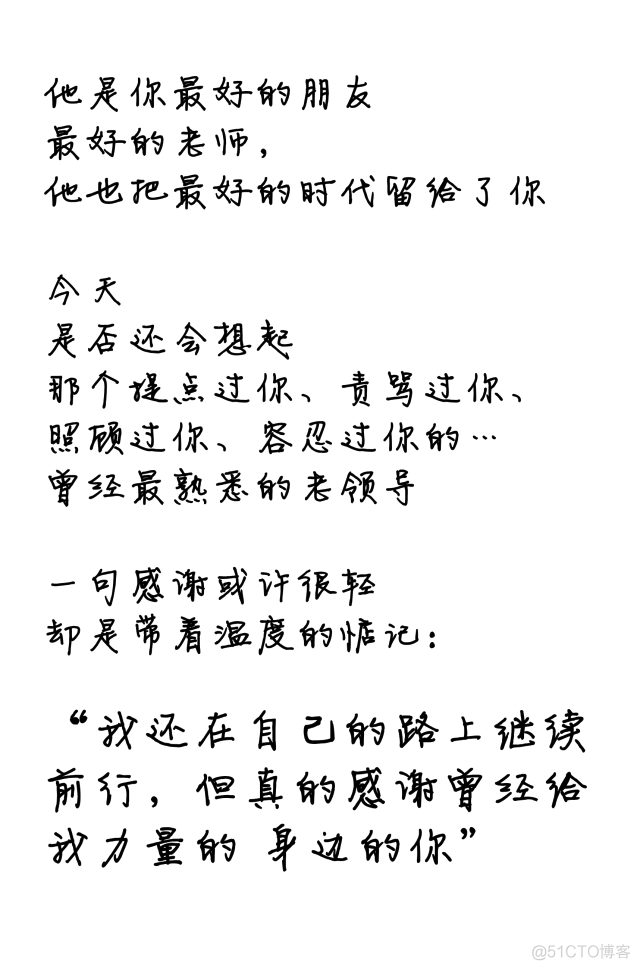 他是你最好的朋友
最好的老师，
他也把最好的时代留给了你
今天
是否还会想起
那个提点过你、责骂过你、
照顾过你、容忍过你的…
曾经最熟悉的老领导
一句感谢或许很轻
却是带着温度的惦记：
“我还在自己的路上继续
前行，但真的感谢曾经给
我力量的 身边的你”
@51CTO博客